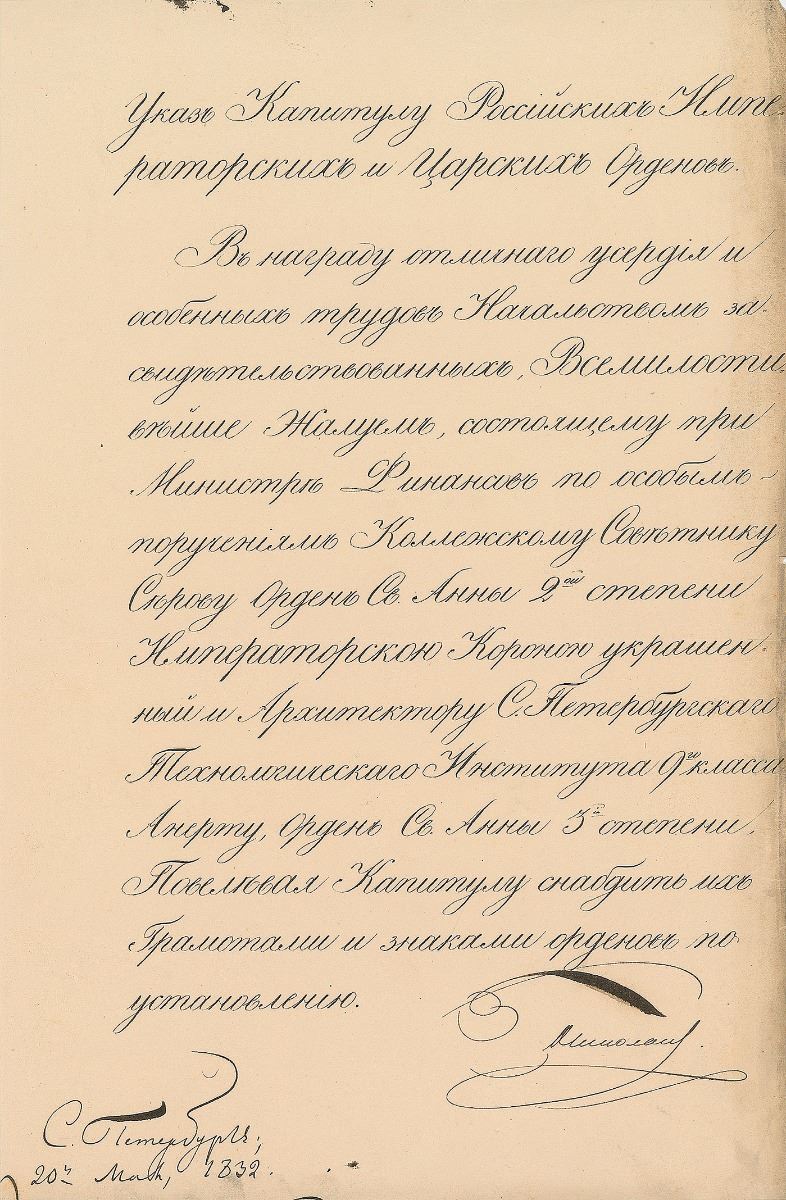 Указъ Капитулу Россійскихъ Импе-
раторскихъ и Царскихъ Орденовъ.
Въ награду отличнаго усердія и
особенныхъ трудовъ Начальствомъ за-
свидѣтельствованныхъ, Всемилости-
вѣйше Жалуемъ, состоящему при
Министрѣ Финансовъ по особымъ-
порученіямъ Коллежскому Совѣтнику
Сѣрову Орденъ Св. Анны 2ой степени
Императорскою Короною украшен-
ный и Архитектору С. Петербургскаго
Технологическаго Института 9го класса
Анерту, Орденъ Св. Анны 3й степени.
Повелѣвая Капитулу снабдить ихъ
Грамотами и знаками орденовъ по
установленію.
Николай.
С. Петербургъ;
20го Мая, 1832.